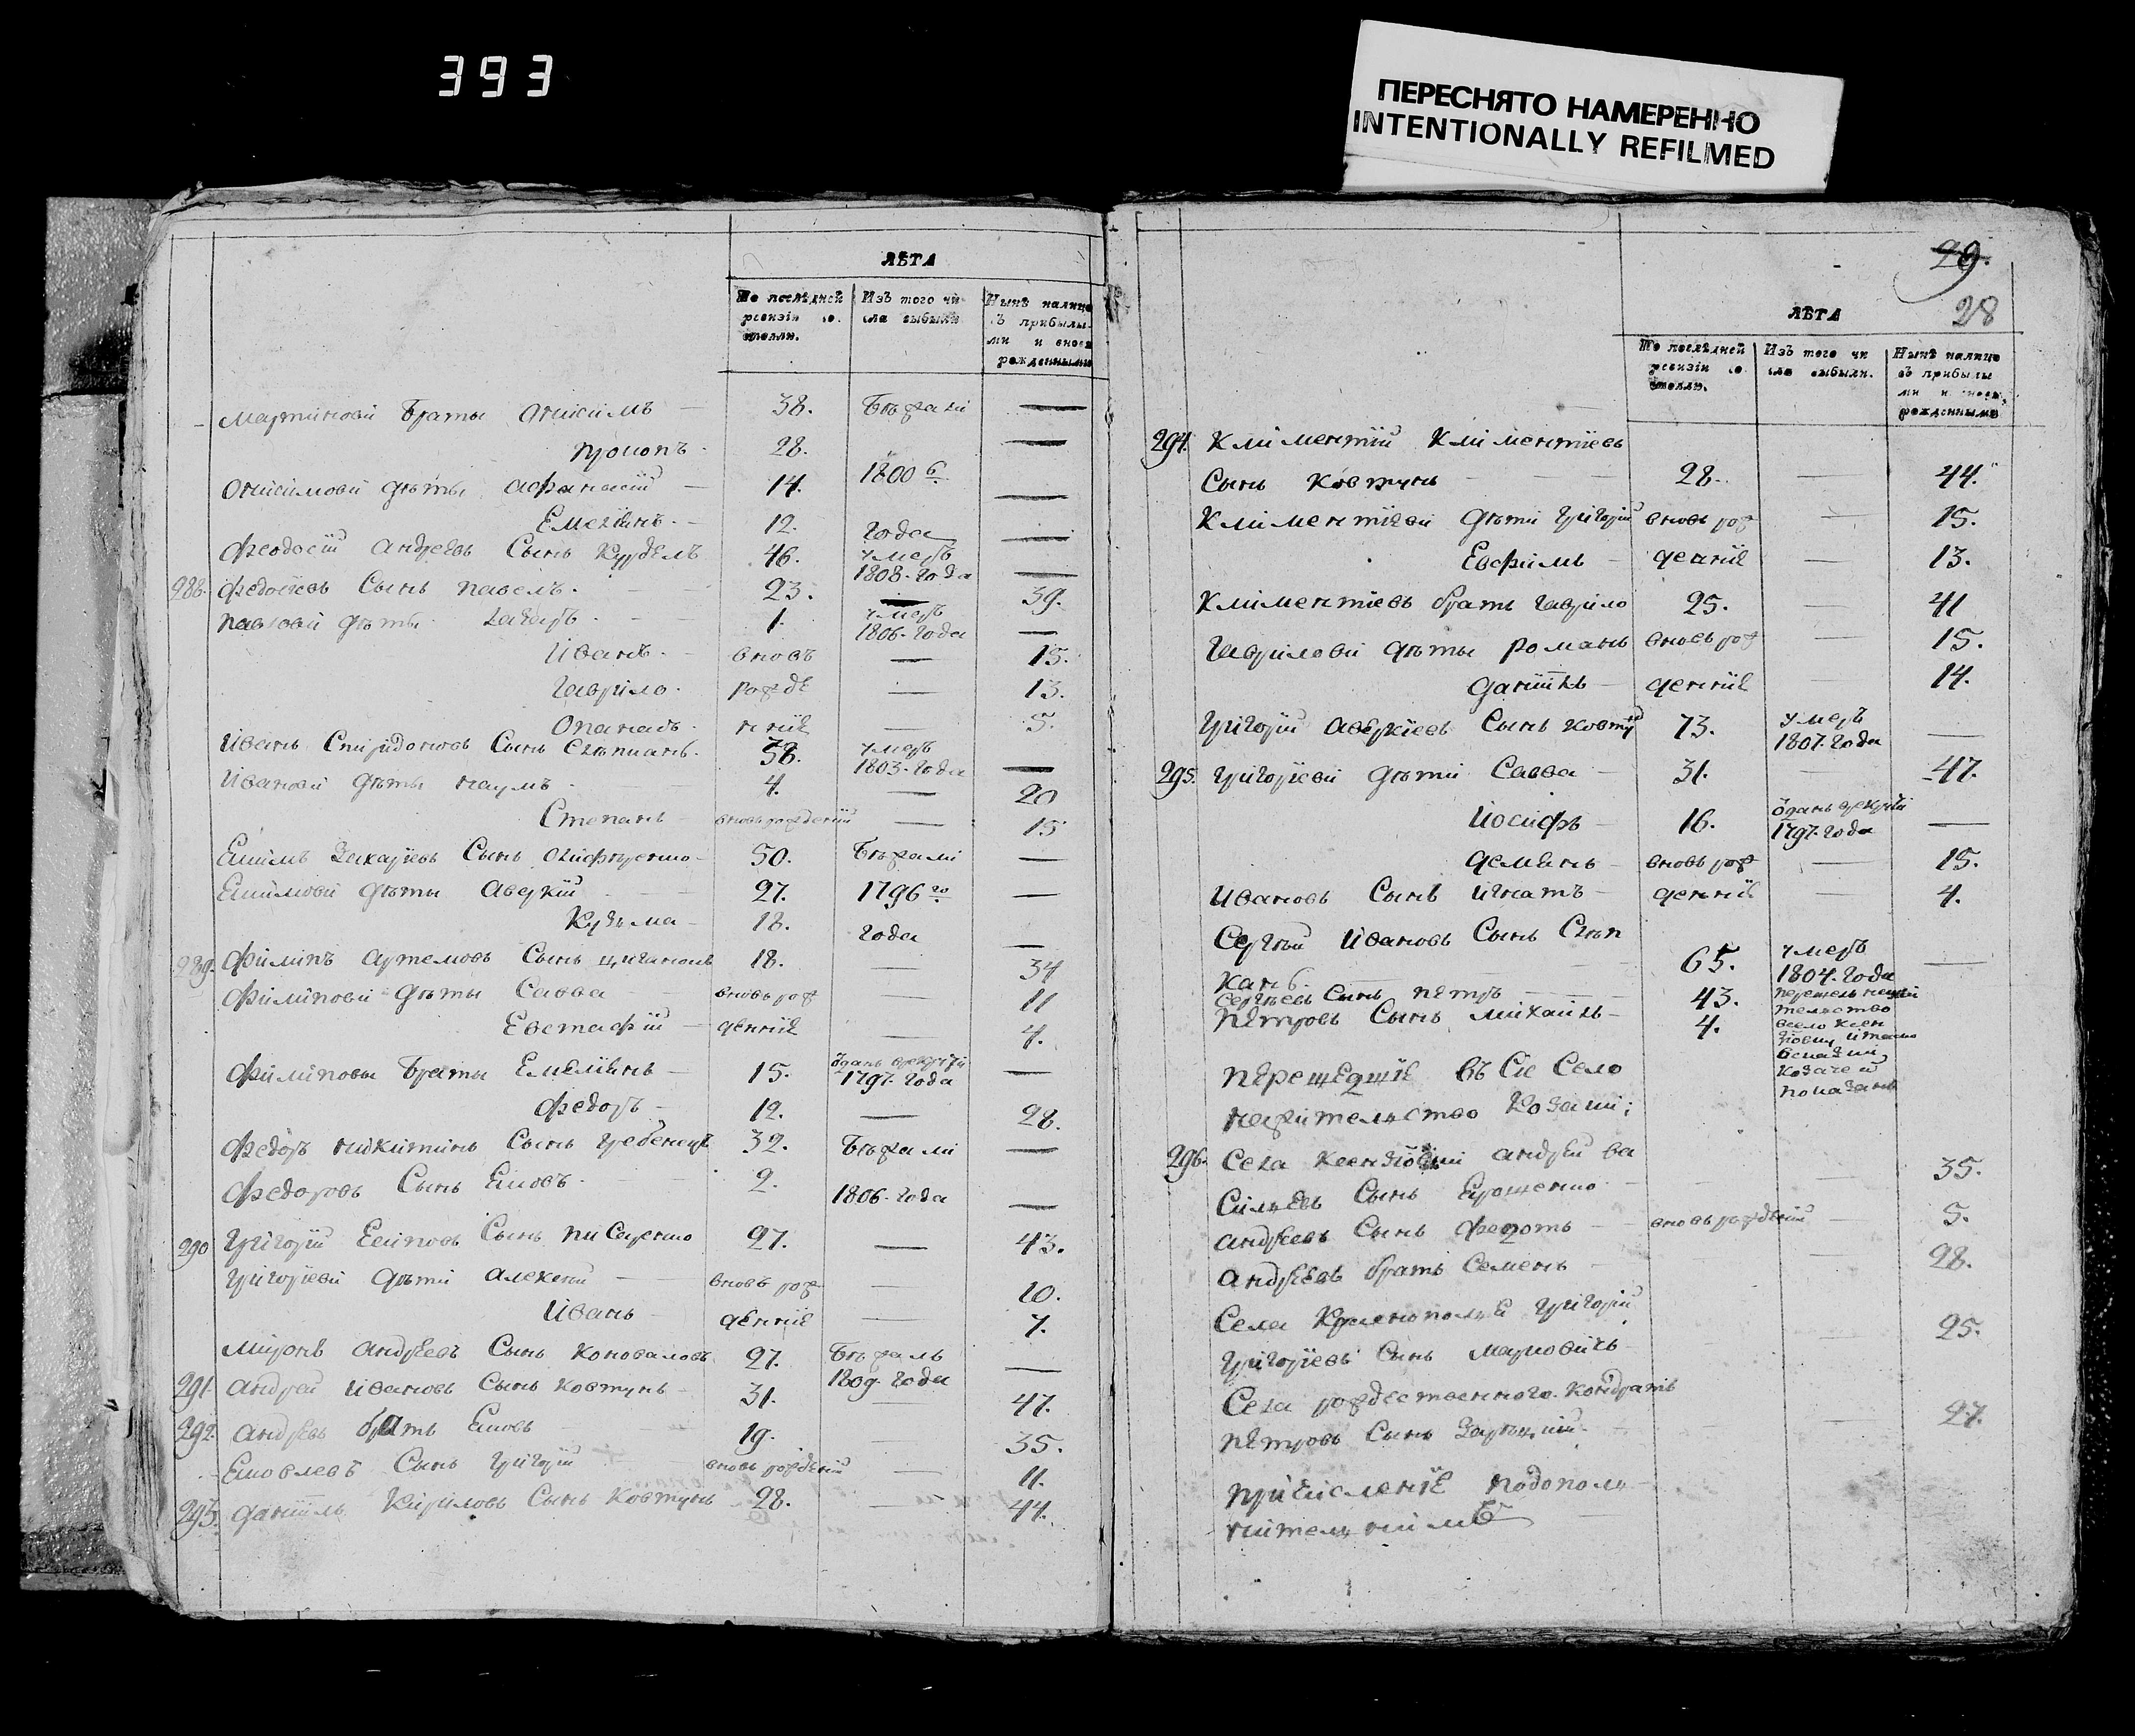 393
ПЕРЕСНЯТО НАМЕРЕННО
INTENTIONALLY REFILMED
ЛѢТА
По послѣдней ревизіи состояли.
Изъ того числа выбыли
Нынѣ налицо съ прибылыми и вновь рожденными
Мартиновы браты Онисимъ — 38. Бѣжали —
Прокопъ. 28. —
Онисимовы дѣты Афанасій — 14. 1800 г. —
Емельянъ. — 12. года —
Феодосій Андреевъ Сынъ 46. умеръ 1808. года —
288. Федосіевъ Сынъ павелъ. 23. — 39.
павловы дѣты Захаръ. 1. умеръ 1806. года —
Иванъ. вновь — 15.
Гаврило. рожде — 13.
Опанасъ. нніе — 5.
Иванъ Спиридоновъ Сынъ 58. умеръ 1803. года —
Ивановы дѣты наумъ 4. — 20
Степанъ вновь рожденій — 15
Захаріевъ Сынъ 50. Бѣжали —
дѣты Аверкій 27. 1796 го —
Кузьма — 18. года —
289. Филипъ Артемовъ Сынъ 18. — 34
Филиповы дѣты Савва вновь рож — 11
Евстафій — денніе — 4.
Филиповы браты Емельянъ — 15. 1797. года —
Федоръ — 12. — 28.
Федоръ Никитинъ Сынъ Гребенецъ 32. Бѣжали —
Федоровъ Сынъ Яковъ. 2. 1806. года —
290 Григорій Сынъ Писаренко 27. — 43.
Григоріевы дѣти Алексей — вновь рож — 10.
Иванъ — денніе — 7.
Миронъ Андреевъ Сынъ Коноваловъ 27. Бѣжалъ 1809. года —
291. Андрей Ивановъ Сынъ Ковтунъ 31. — 47.
292. Андреевъ братъ Яковъ 19. — 35.
Яковлевъ Сынъ Григорій вновь рожденій — 11.
293. Даніилъ Кириловъ Сынъ Ковтунъ 28. — 44.
29.
28
ЛѢТА
По послѣдней ревизіи состояли.
Изъ того числа выбыли.
Нынѣ налицо съ прибылыми и вновь рожденными
294. Климентій Климентіевъ
Сынъ Ковтунъ 28. — 44.
Климентіевы дѣти Григорій вновь рож — 15.
Евфимъ — денніе — 13.
Климентіевъ братъ Гаврило 25. — 41
Гавриловы дѣты Романъ вновь рож — 15.
Даніилъ — денніе — 14.
Григорій Аверкіевъ Сынъ Ковтунъ 73. умеръ 1807. года —
295. Григоріевы дѣти Савва — 31. — 47.
Иосифъ — 16. 1797. года —
Демянъ — вновь рож — 15.
Ивановъ Сынъ Игнатъ — денніе — 4.
Сергѣй Ивановъ Сынъ Слѣп
канъ. 65. умеръ 1804. года —
Сергѣевъ Сынъ петръ 43.
Петровъ Сынъ Михаилъ — 4.
показанъ
перешедшіе въ Сіе Село
нажительство Козаки;
296. Села Андрей Ва
сильевъ Сынъ — 35.
Андреевъ Сынъ Федотъ — вновь рожденій — 5.
Андреевъ братъ Семенъ — 28.
Села Григорій
Григоріевъ Сынъ Марковичъ — 25.
Села рождественного Кондратъ
Петровъ Сынъ Зарѣцкій — 27.